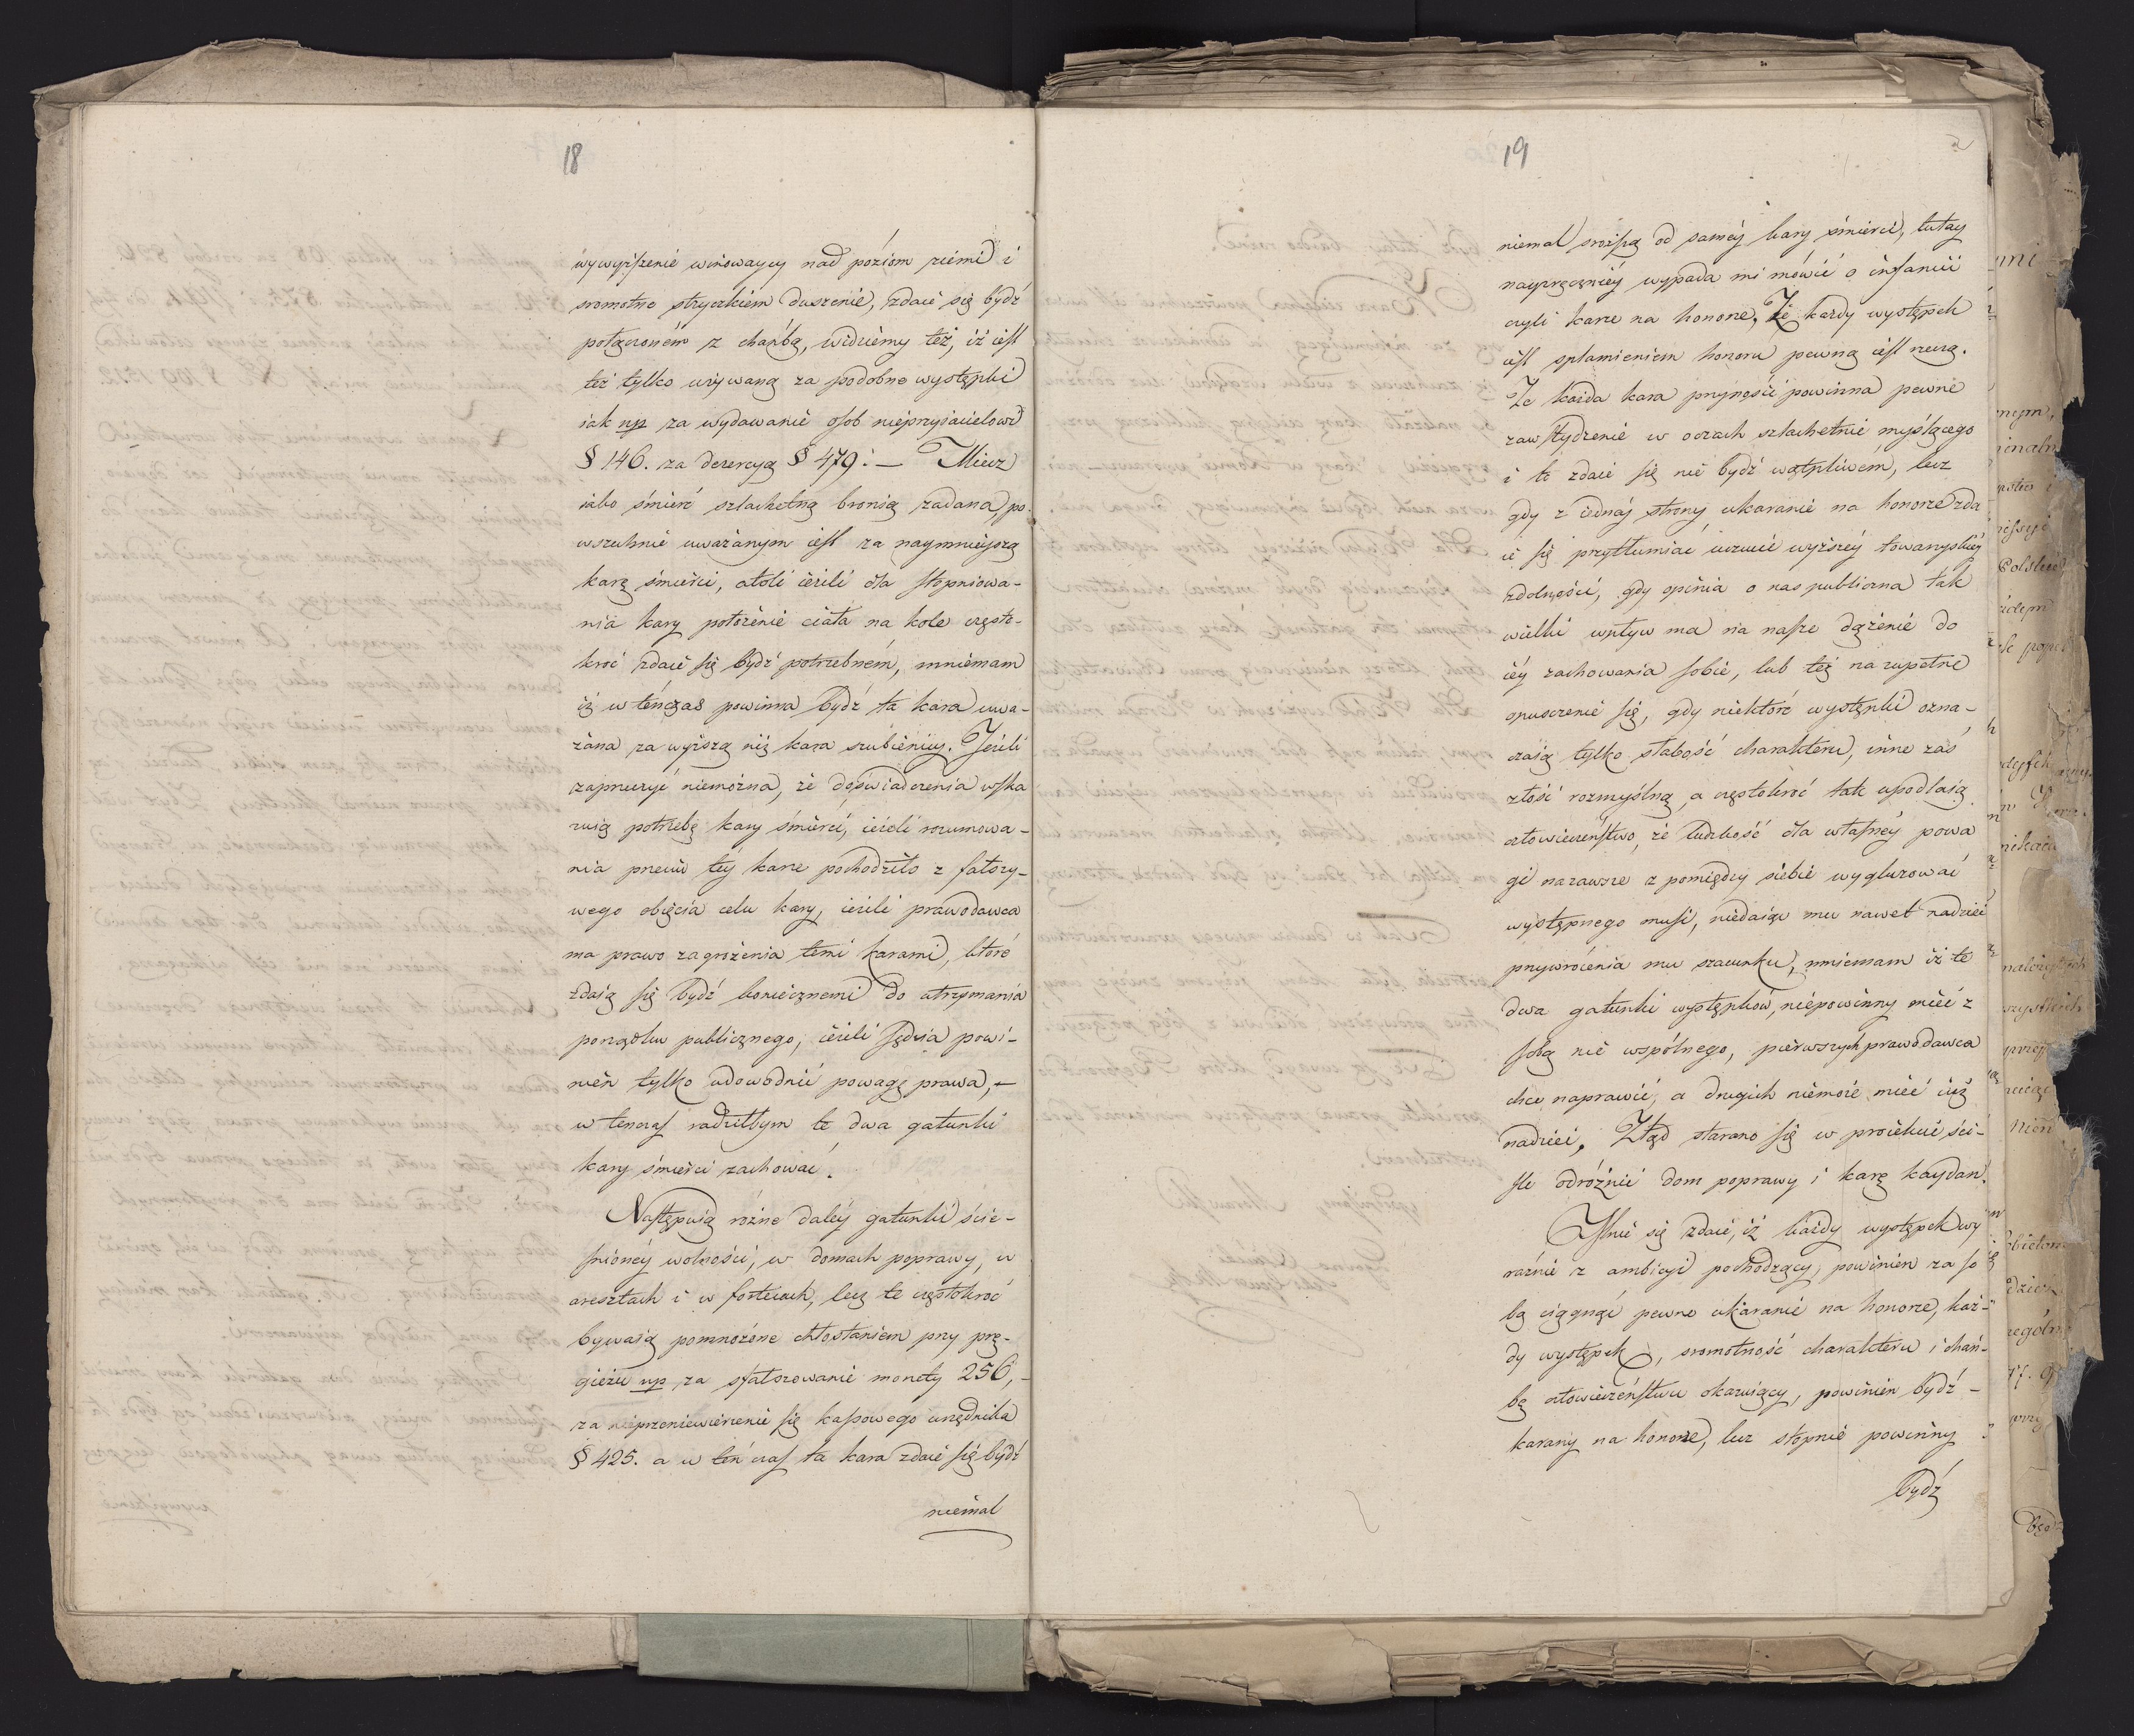 18
wywyższenie winowaycy nad poziom ziemi i
sromotne stryczkiem duszenie, zdaie się bydź
połączoném z chańbą, widziemy też, iż iest
też tylko używaną za podobne występki
iak np za wydawanie osob nieprzyiacielowi
§ 146. za dezercyą § 479: — Miecz
iako śmierć szlachetną bronią zadana, po-
wszechnie uważanym iest za naymnieyszą
karę śmierci, atoli ieżeli dla stopniowa-
nia kary położenie ciała na kole często-
kroć zdaie się bydź potrzebném, mniemam
iż wtenczas powinna bydź ta kara uwa-
żana za wyższą niż kara szubienicy. Jeżeli
zaprzeczyć niemożna, że doświadczenia wska
zuią potrzebę kary śmierci, ieżeli rozumowa-
nia przeciw tey karze pochodziło z fałszy-
wego obięcia celu kary, ieżeli prawodawca
ma prawo zagrożenia temi karami, które
zdaią się bydź koniecznemi do utrzymania
porządku publicznego, ieżeli sędzia powi-
nien tylko udowodnić powagę prawa, —
w tenczas radziłbym te dwa gatunki
kary śmierci zachować.
Następuią różne daléy gatunki ście-
śnionéy wolności, w domach poprawy, w
aresztach i w fortecach, lecz te częstokroć
bywaią pomnożone chłostaniem przy prę-
gierzu np za sfałszowanie monety 256,-
za przeniewierzenie się kassowego urzędnika
§ 425. a w ten czas ta kara zdaie się bydź
niemal
19
2
niemal sroższą od saméy kary śmierci, tutay
nayzręczniéy wypada mi mówić o infamii
czyli karze na honorze. Że każdy występek
iest splamieniem honoru pewną iest rzeczą.
Że każda kara przynosić powinna pewne
zawstydzenie w oczach szlachetnie myślącego
i to zdaie się nie bydź wątpliwém, lecz
gdy z iednéj strony ukaranie na honorze zda
ie się przytłumiać uczucie wyższéy towarzyskiéy
zdolności, gdy opinia o nas publiczna tak
wielki wpływ ma na nasze dążenie do
iéy zachowania sobie, lub też na zupełne
opuszczenie się, gdy niektóre występki ozna-
czaią tylko słabość charakteru, inne zaś
złość rozmyślną, a częstokroć tak upodlaią
człowieczeństwo, że ludzkość dla własnéy powa
gi nazawsze z pomiędzy siebie wygluzować
występnego musi, niedaiąc mu nawet nadziei
przywrócenia mu szacunku, mniemam iż te
dwa gatunki występków, niepowinny mieć z
sobą nic wspólnego, pierwszych prawodawca
chce naprawić, a drugich niemoże mieć iuż
nadziei. Ztąd starano się w proiekcie ści-
śle odróżnić dom poprawy i karę kaydan.
Słuszna się zdaie, iż każdy występek wy
raźnie z ambicyi pochodzący, powinien za so
bą ciągnąć pewne ukaranie na honorze, każ-
dy występek, sromotność charakteru i chań-
bę człowieczeństwu okazuiący, powinien bydź -
karany na honorze, lecz stopnie powinny
bydź